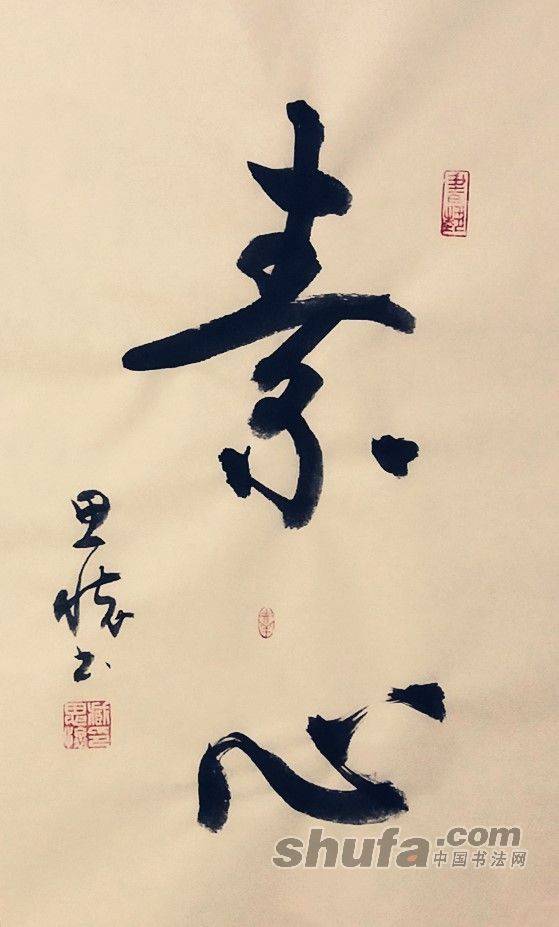 素心
思懐书
shufa.com
中国书法网